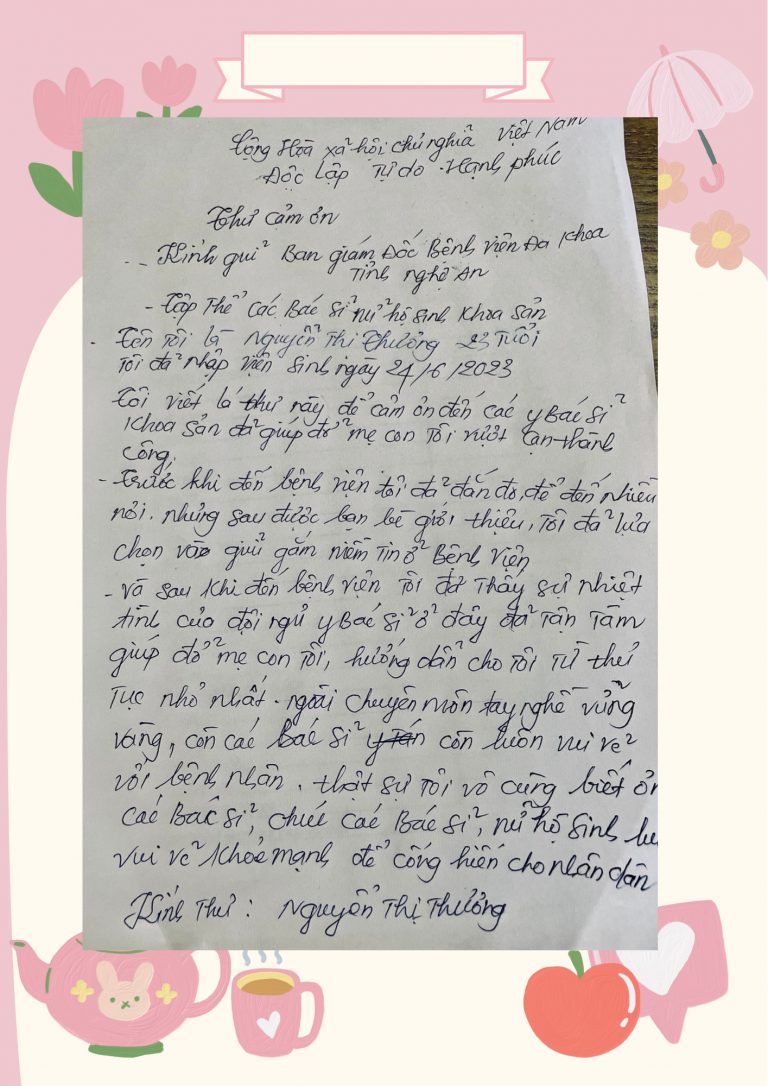 Cộng Hoà xã hội chủ nghĩa Việt Nam
Độc Lập Tự do . Hạnh phúc
Thư cảm ơn
- - Kính gưỉ Ban giám Đốc Bệnh viện Đa Khoa
Tỉnh nghệ An
- Tập Thể các Bác Sỉ nử hộ sinh Khoa Sản
- Tên Tôi là Nguyễn Thị Thưởng 23 Tuổi
Tôi đả nhập viện Sinh ngày 24/6/2023
Tôi viết lá thư này để cảm ơn đến các y Bác Sỉ
Khoa Sản đả giúp đở mẹ con Tôi vượt cạn thành
công.
- Trước khi đến bệnh viện tôi đả đắn đo, để đến nhiều
nơi. nhưng sau được bạn bè giới thiệu, Tôi đả lựa
chọn và giử gắm niềm Tin ở Bệnh Viện
- và sau khi đến bệnh viện Tôi đả Thấy sự nhiệt
tình của đội ngủ y Bác Sỉ ở đây đả Tận Tâm
giúp đở mẹ con Tôi, hướng dẩn cho Tôi Từ thủ
Tục nhỏ nhất . ngoài chuyên môn tay nghề vững
vàng, còn các bác Sỉ còn luôn vui vẻ
với bệnh nhân . thật sự Tôi vô cùng biết ơn
các Bác Sỉ, chúc các Bác Sỉ, nử hộ Sinh
vui vẻ khoẻ mạnh để cống hiến cho nhân dân
Kính Thư : Nguyễn Thị Thưởng